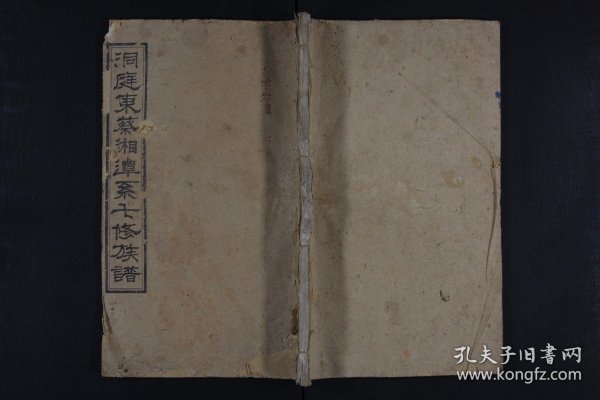 洞庭東蔡湘潭系七修族譜
孔夫子旧书网
www.kongfz.com